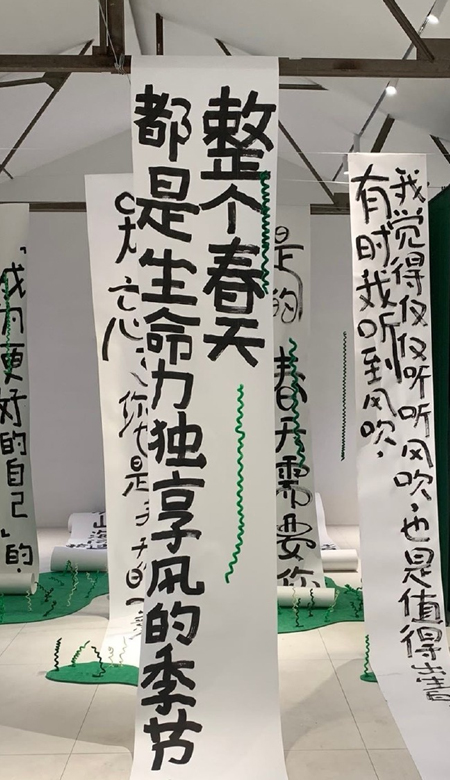 我觉得仅仅听听风吹，也是值得
有时我听到风吹，
整个春天
都是生命力独享风的季节
是的
春天需要你
你也是
成为更好的自己
的.